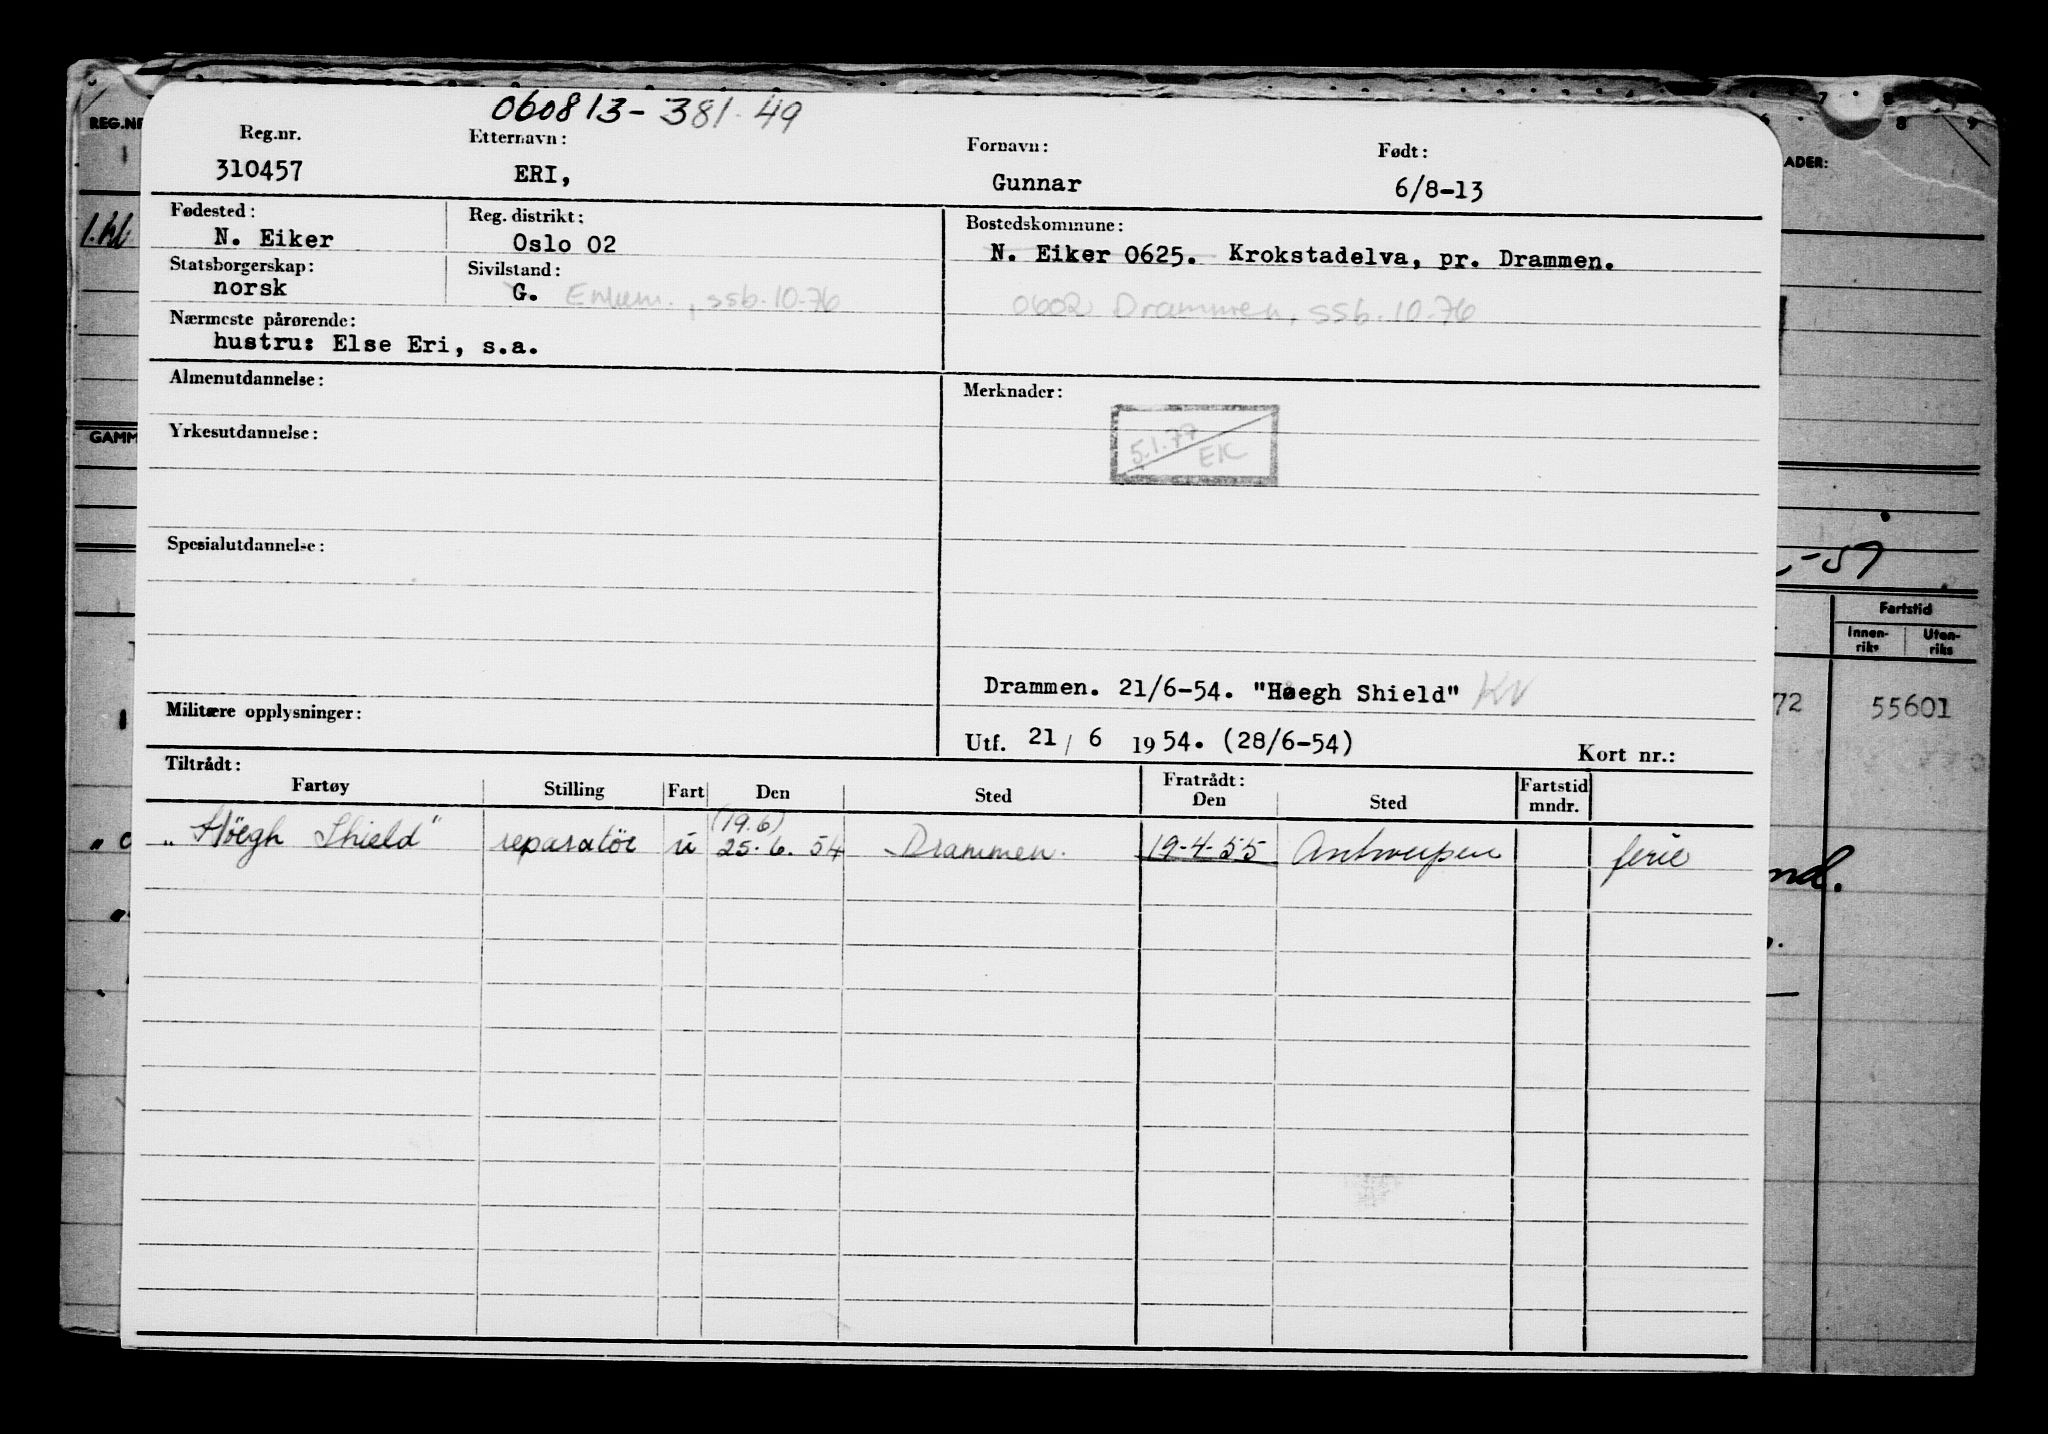 060813-381-49
Reg.nr. Etternavn: Fornavn: Født:
310457 ERI, Gunnar 6/8-13
Fødested: Reg. distrikt: Bostedskommune:
N. Eiker Oslo 02 N. Eiker 0625. Krokstadelva, pr. Drammen.
Statsborgerskap: Sivilstand:
norsk G. Enkem., ssb. 10-76 0602 Drammen, ssb. 10-76
Nærmeste pårørende:
hustru: Else Eri, s.a.
Almenutdannelse: Merknader:
5.1.77
EK
Yrkesutdannelse:
Spesialutdannelse:
Drammen. 21/6-54. "Høegh Shield" KN
Militære opplysninger:
Utf. 21 / 6 1954. (28/6-54) Kort nr.:
Tiltrådt: Fratrådt:
Fartøy Stilling Fart Den Sted Den Sted Fartstid mndr.
(19.6)
"Höegh Shield" reparatör u 25.6. 54 Drammen. 19-4-55 Antwerpen ferie
REG.NR
1
1.kl
GAMM
ADER:
-59
Fartstid
Innen-riks Uten-riks
72 55601
nd.